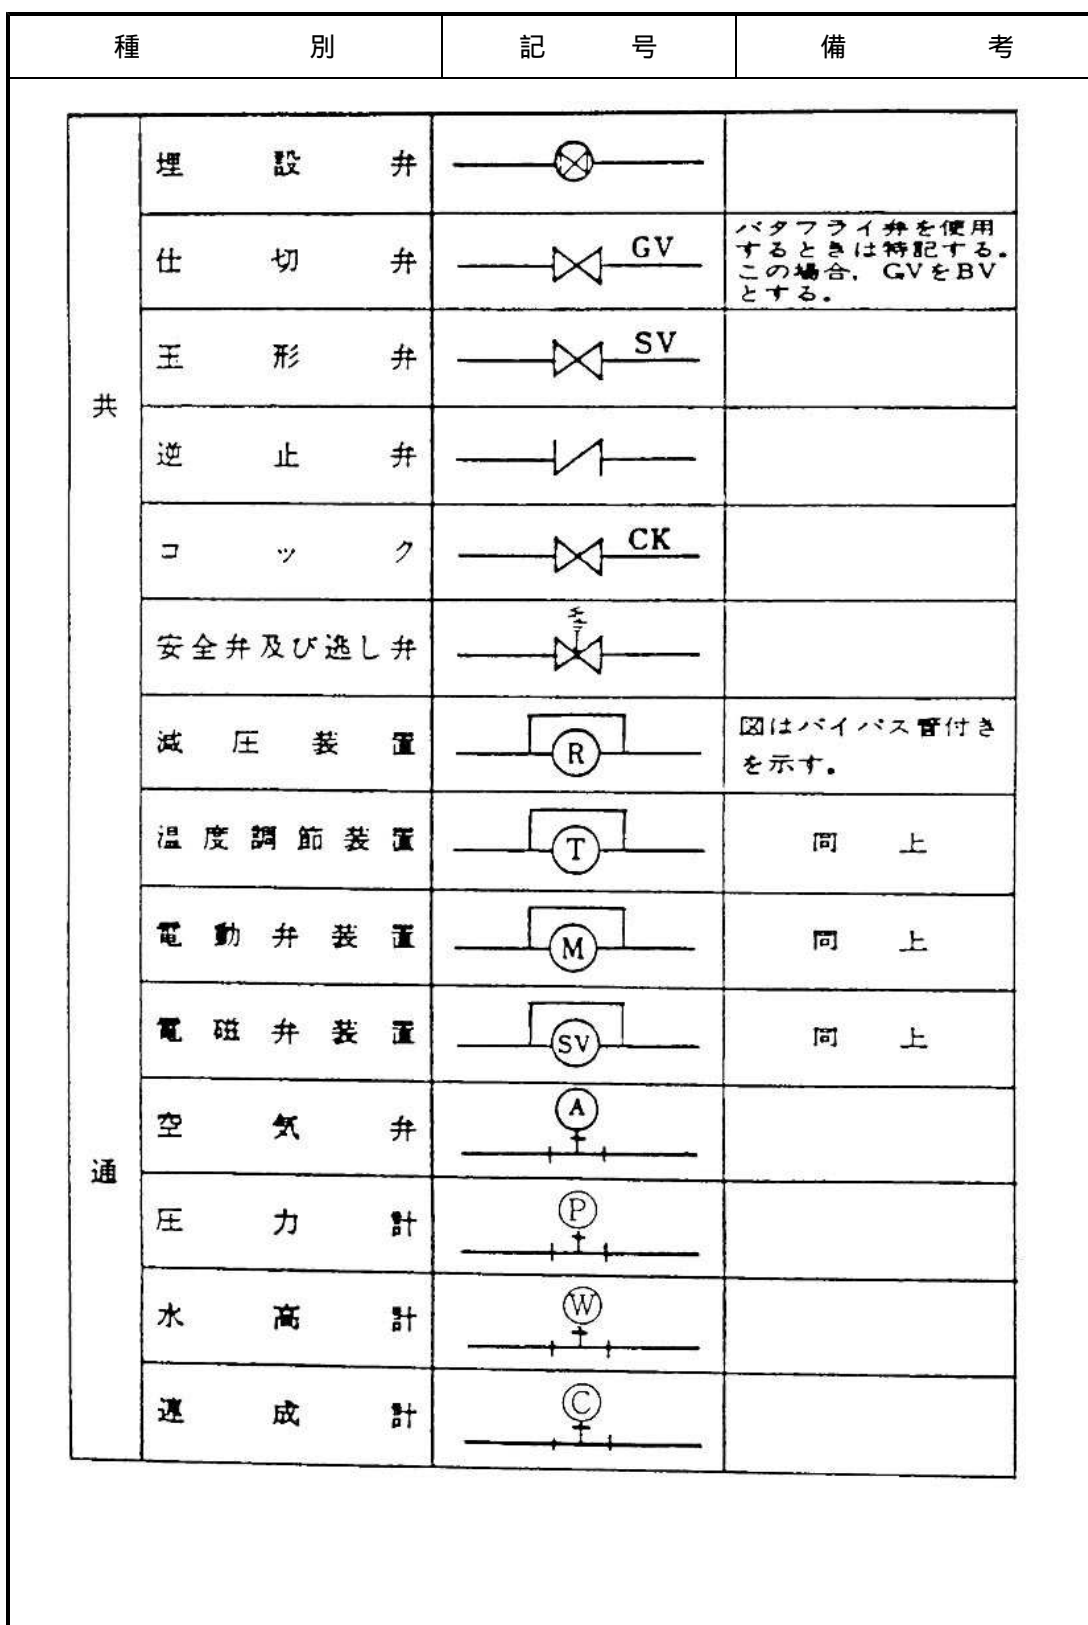 種別 記号 備考
共通
埋設弁
仕切弁 GV バタフライ弁を使用
するときは特記する。
この場合,GVをBV
とする。
玉形弁 SV
逆止弁
コック CK
安全弁及び逃し弁
減圧装置 R 図はバイパス管付き
を示す。
温度調節装置 T 同上
電動弁装置 M 同上
電磁弁装置 SV 同上
空気弁 A
圧力計 P
水高計 W
連成計 C